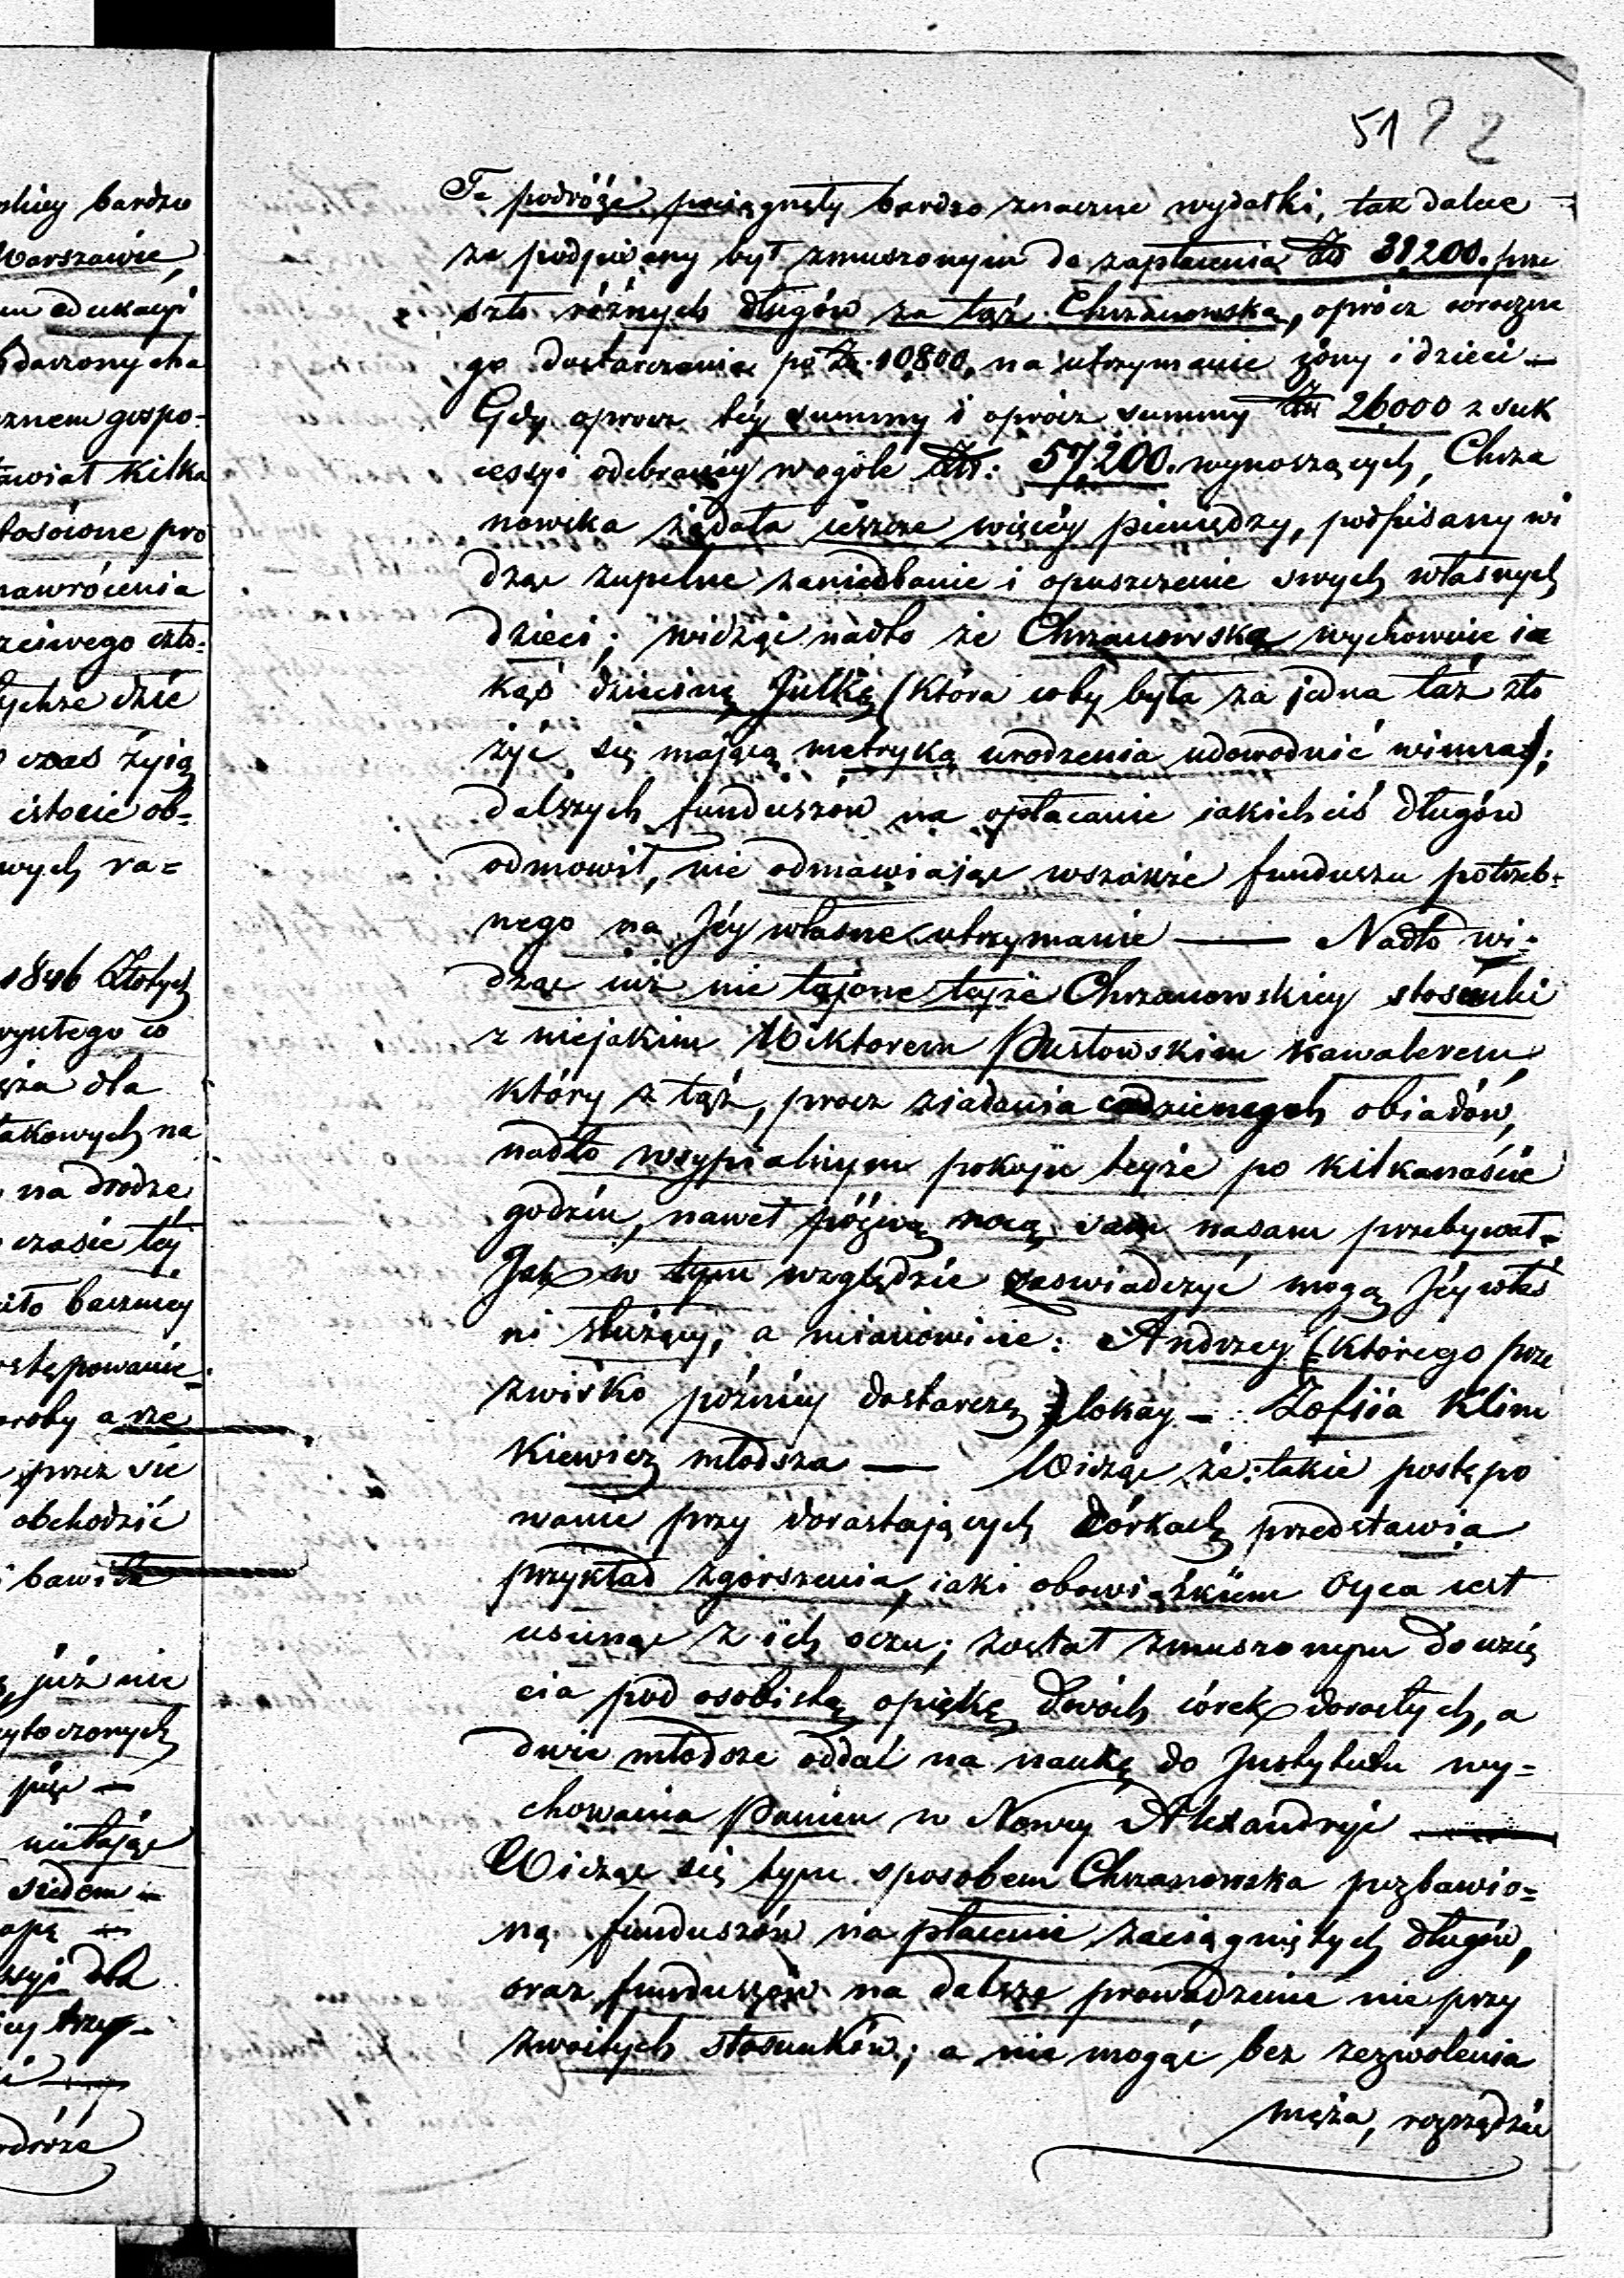 51 22
Te podróże pociągnęły bardzo znaczne wydatki, tak dalece
że podpisany był zmuszonym do zapłacenia Złp 31200. prze
szło różnych długów za tąż Chrzanowską, oprócz coroczne
go dostarczania po Zł. 10800, na utrzymanie żony i dzieci —
Gdy oprocz téy summy i oprócz summy Złp 26000 z suk
cessyi odebranéy w ogóle Złp: 57,200. wynoszących, Chrza
nowska żądała ieszcze więcéy pieniędzy, podpisany wi
dząc zupełne zaniedbanie i opuszczenie swych własnych
dzieci; widząc nadto że Chrzanowska wychowuie ia
kąś dziecinę Julkę (która coby była za jedna taż zło
żyć się mającą metryką urodzenia udowodnić winna);
dalszych funduszów na opłacanie iakichciś długów
odmowił, nie odmawiając wszakże funduszu potrzeb=
nego na Jéy własne utrzymanie — Nadto wi=
dząc iuż nie tajone teyże Chrzanowskiey stosunki
z niejakim Wiktorem Pusłowskim kawalerem,
który z tąż, procz ziadania codziennych obiadów,
nadto w sypialnym pokoju teyże po kilkanaście
godzin, nawet późną nocą sam nasam przebywał.
Jak w tym względzie zaswiadczyć mogą Jéy właś
ni służący, a mianowicie: Andrzey (którego prze
zwisko późniéy dostarczę) lokay — Zofiia Klim
kiewicz młodsza — Widząc że takie postępo
wanie przy dorastających Córkach przedstawia
przykład zgorszenia, iaki obowiązkiem Oyca iest
usunąć z ich oczu; został zmuszonym do wzię
cia pod osobistą opiekę dwóch córek dorosłych, a
dwie młodsze oddać na naukę do Justytutu wy=
chowania Panien w Nowey Alexandryi —
Widząc się tym sposobem Chrzanowska pozbawio=
ną funduszów na płacenie zaciągniętych długów,
oraz funduszów na dalsze prowadzenie nie przy
zwoitych stosunków; a nie mogąc bez zezwolenia
męża, rozrządzać